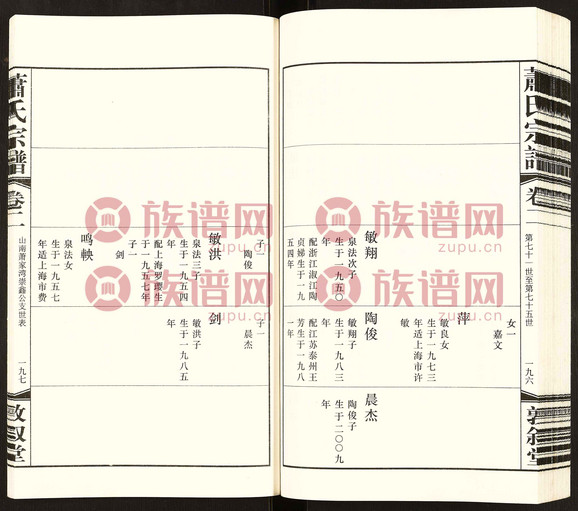 蕭氏宗譜
卷二
第七十一世至第七十五世
一九六
敦叙堂
女一
嘉文
萍
敏良女
生于一九五三
年适上海市许
敏
敏翔
泉法次子
生于一九五〇
年
配浙江淑江陶
贞娣生于一九
五四年
陶俊
敏翔子
生于一九八三
年
配江苏泰州王
芳生于一九八
一年
晨杰
陶俊子
生于二〇〇九
年
子一
陶俊
子一
晨杰
敏洪
泉法三子
生于一九五四
年
配上海罗璎生
于一九五七年
子一
剑
剑
敏洪子
生于一九八五
年
鸣軮
泉法女
生于一九五七
年适上海市费
蕭氏宗譜
卷二
山南萧家湾崇鑫公支世表
一九七
敦叙堂
族谱网
zupu.cn
族谱网
zupu.cn
族谱网
zupu.cn
族谱网
zupu.cn
族谱网
zupu.cn
族谱网
zupu.cn